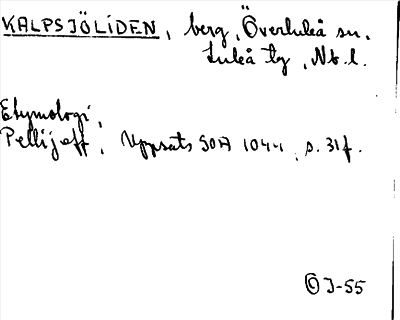 KALPSJÖLIDEN, berg, Överluleå sn.
Luleå tg, Nb. l.
Etymologi,
Pellijeff, Uppsats SOA 1044, s. 31f.
© J-55